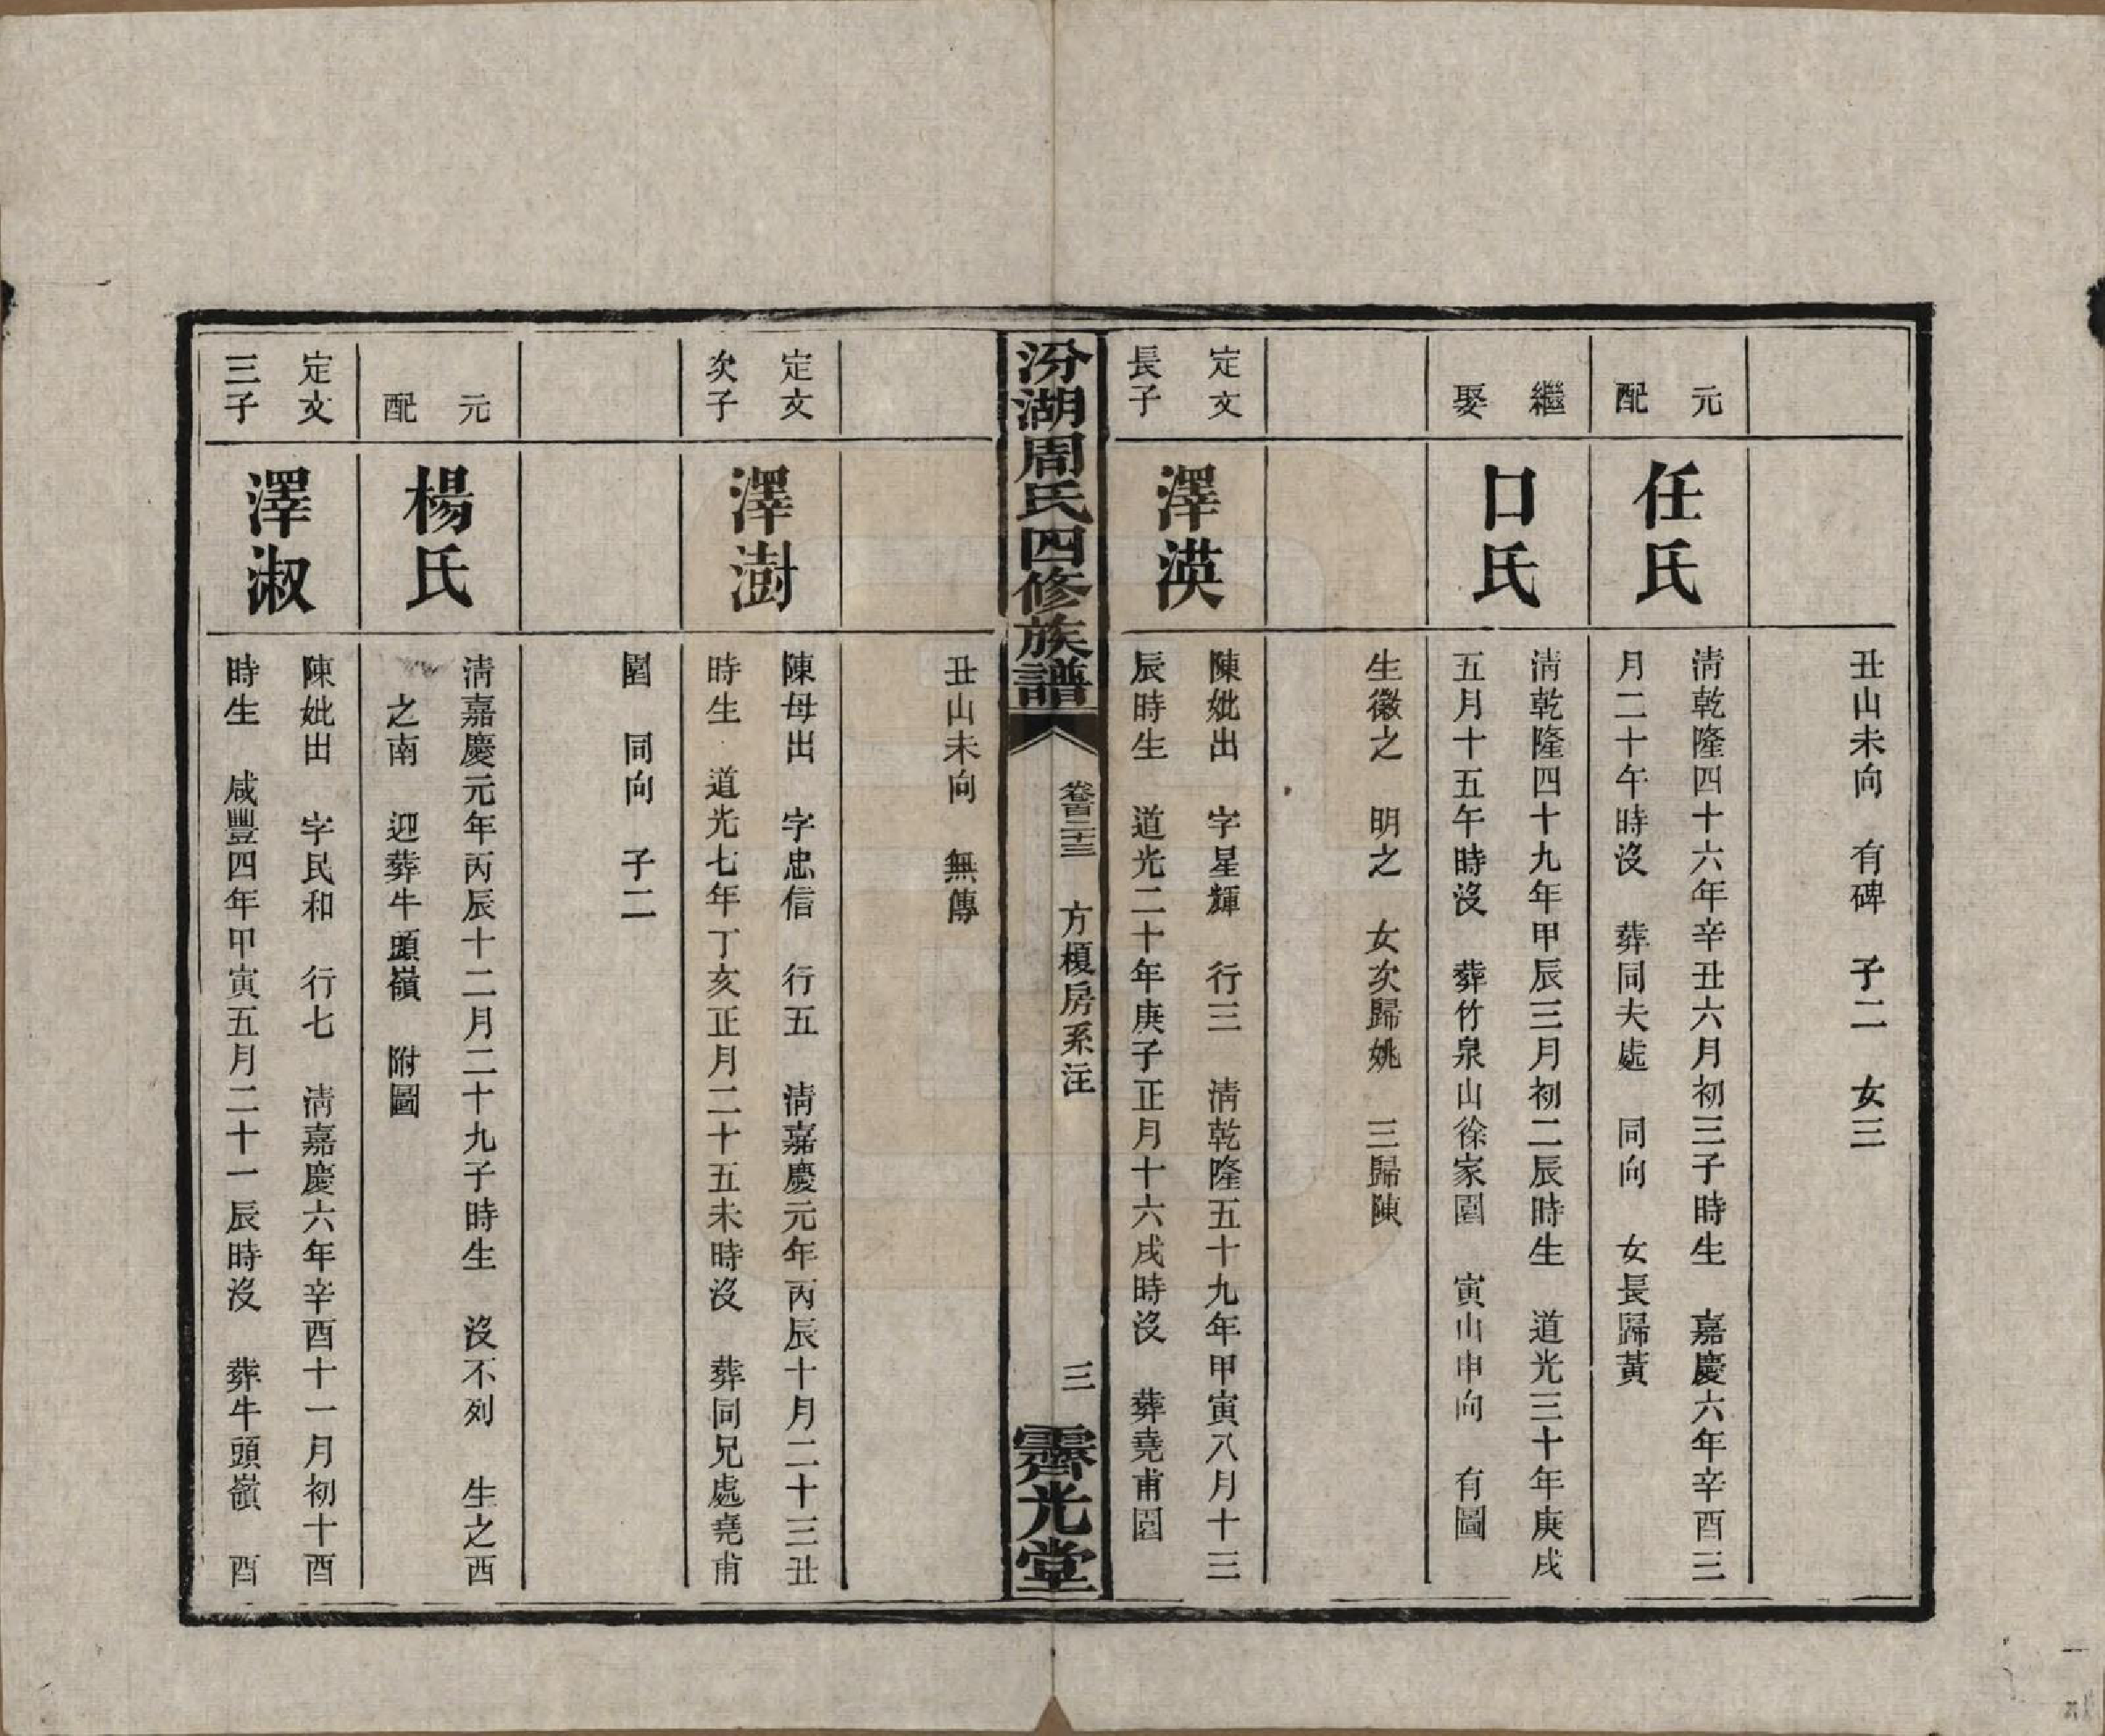 丑山未向　有碑　子二　女三
元配
任氏
清乾隆四十六年辛丑六月初三子時生　嘉慶六年辛酉三
月二十午時沒　葬同夫處　同向　女長歸黃
繼娶
口氏
清乾隆四十九年甲辰三月初二辰時生　道光三十年庚戌
五月十五午時沒　葬竹泉山徐家園　寅山申向　有圖
生徽之　明之　女次歸姚　三歸陳
定文
長子
澤渶
陳妣出　字星輝　行三　清乾隆五十九年甲寅八月十三
辰時生　道光二十年庚子正月十六戌時沒　葬堯甫園
汾湖周氏四修族譜
卷百二十三　方榎房系注
三
霽光堂
丑山未向　無傳
定文
次子
澤澍
陳母出　字忠信　行五　清嘉慶元年丙辰十月二十三丑
時生　道光七年丁亥正月二十五未時沒　葬同兄處堯甫
園　同向　子二
元配
楊氏
清嘉慶元年丙辰十二月二十九子時生　沒不列　生之酉
之南　迎葬牛頭嶺　附圖
定文
三子
澤淑
陳妣出　字民和　行七　清嘉慶六年辛酉十一月初十酉
時生　咸豐四年甲寅五月二十一辰時沒　葬牛頭嶺　酉